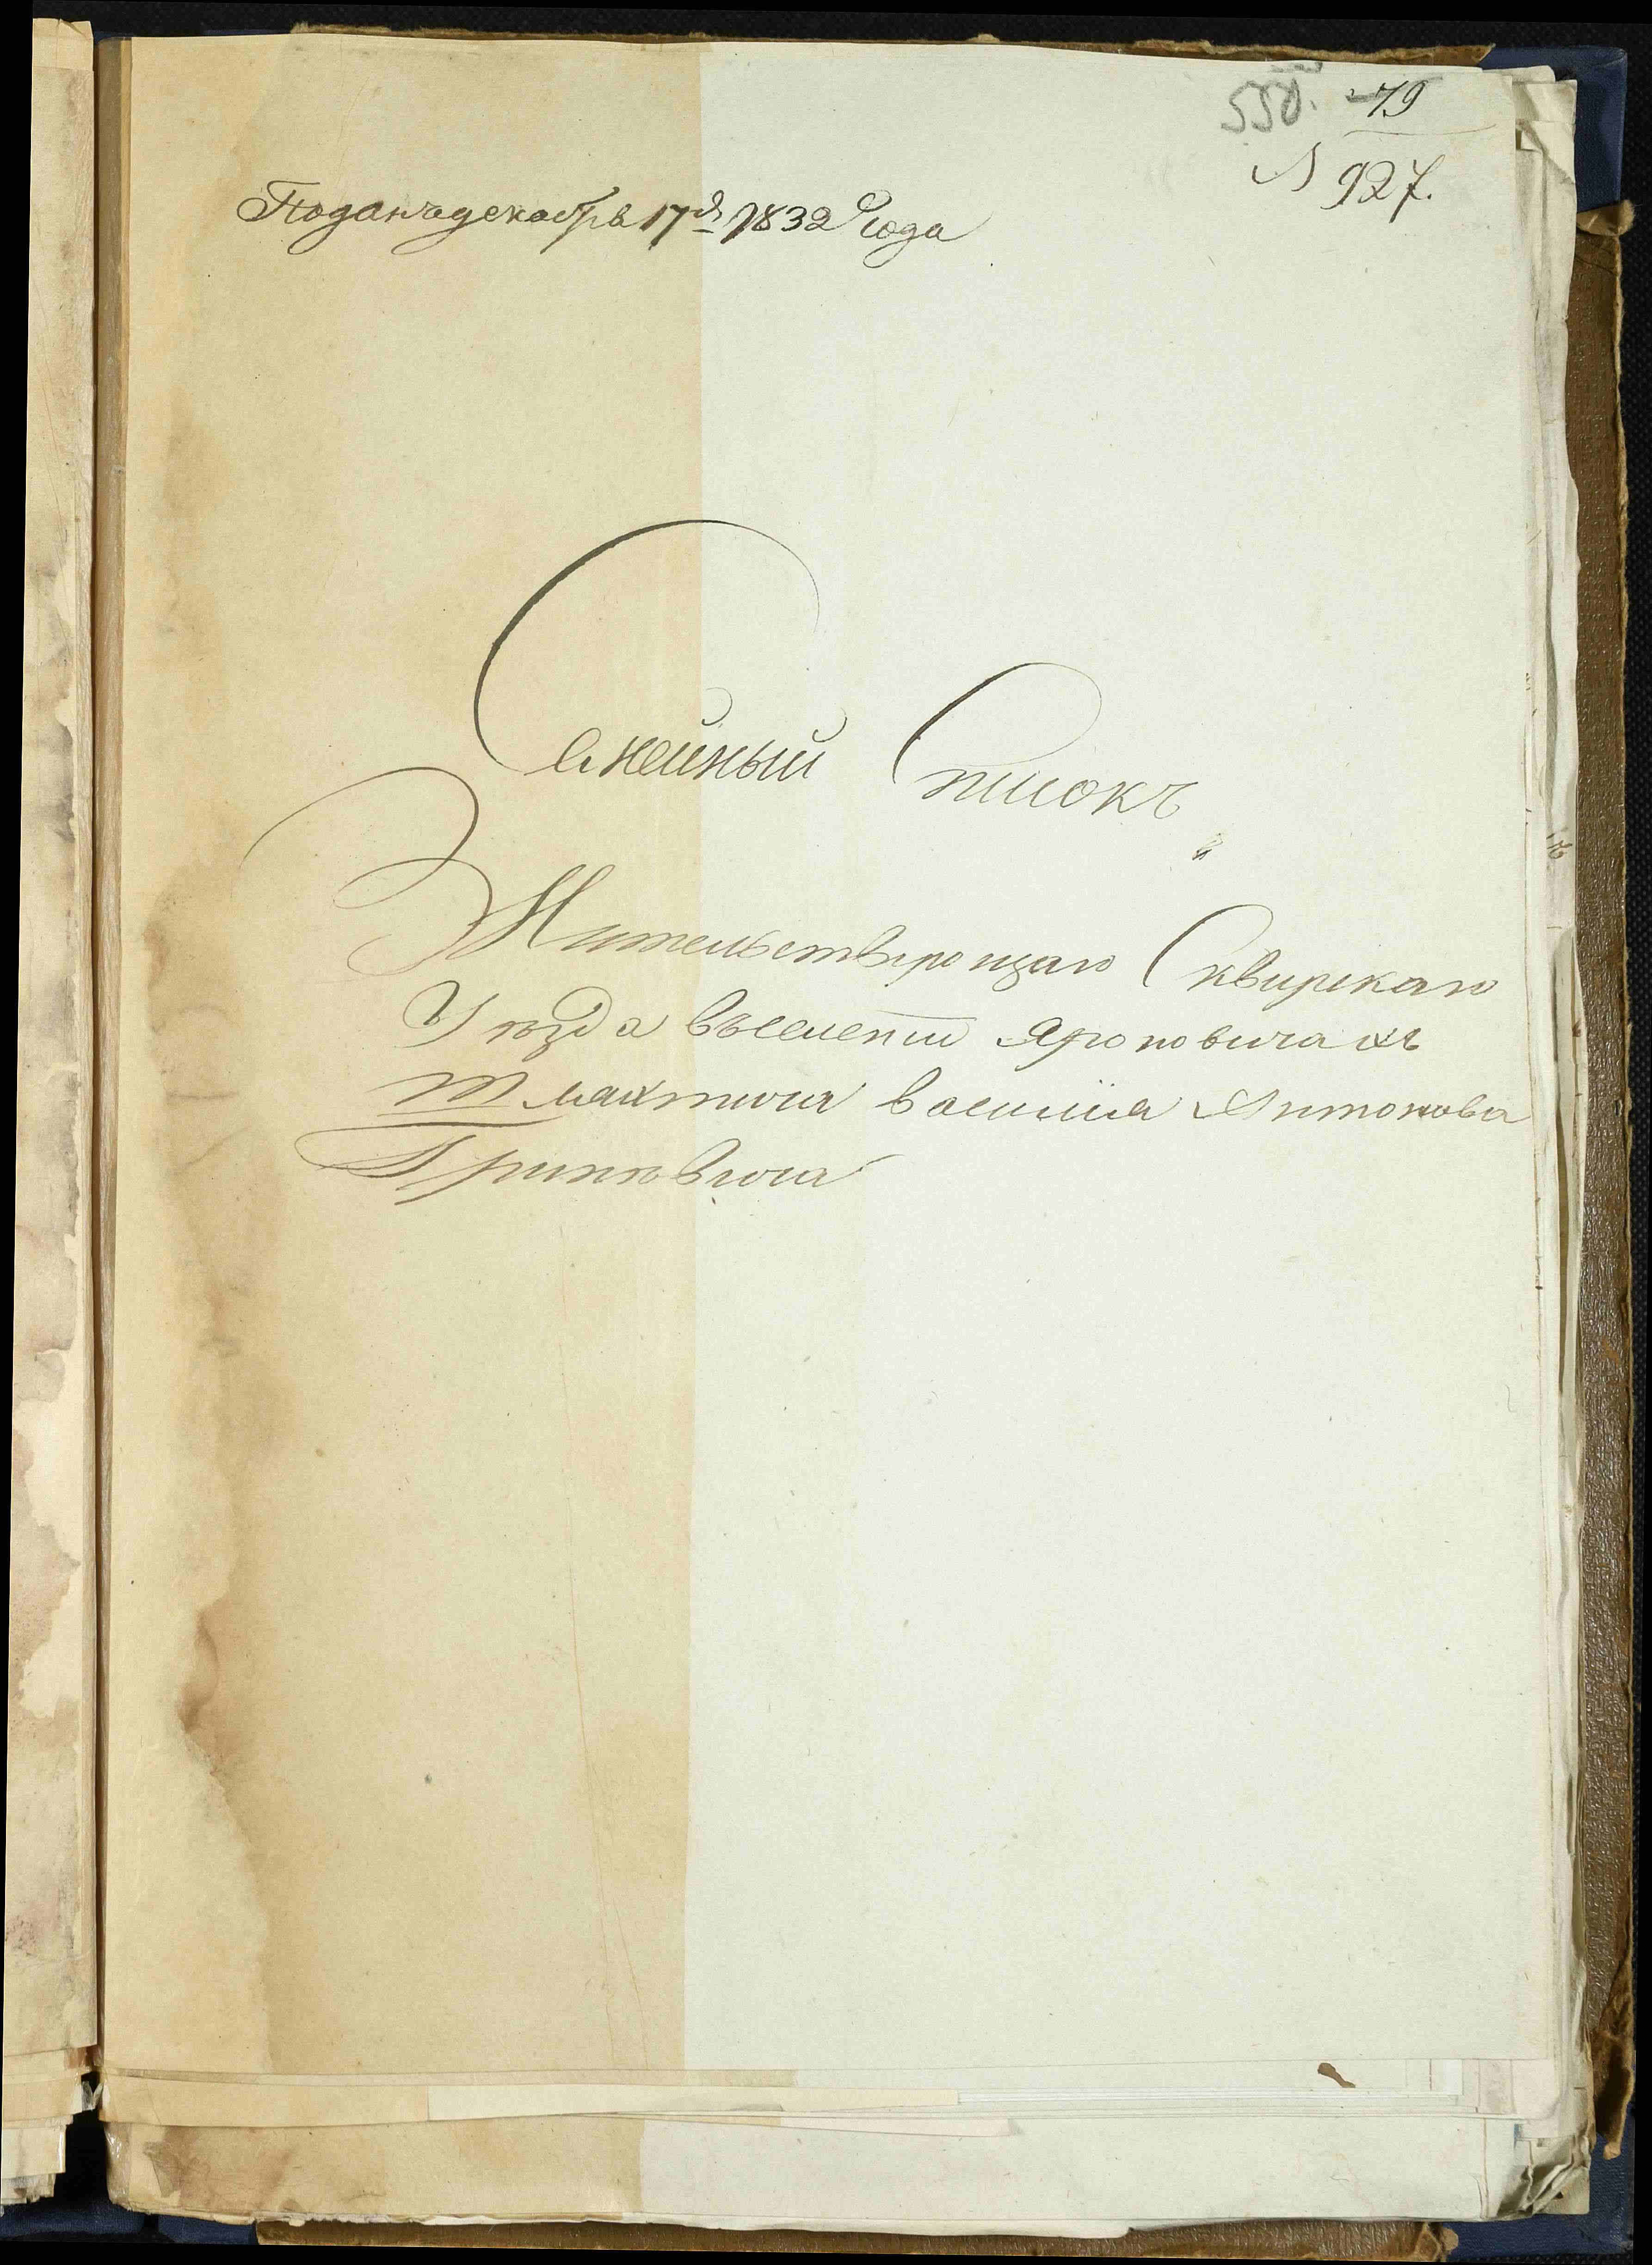 550. 79
927.
Поданъ декабря 17 д. 1832 года
Семейный Списокъ
Жительствующаго Сквирскаго
Уезда Вселении Яроповичахъ
Шляхтича Василия Антонова